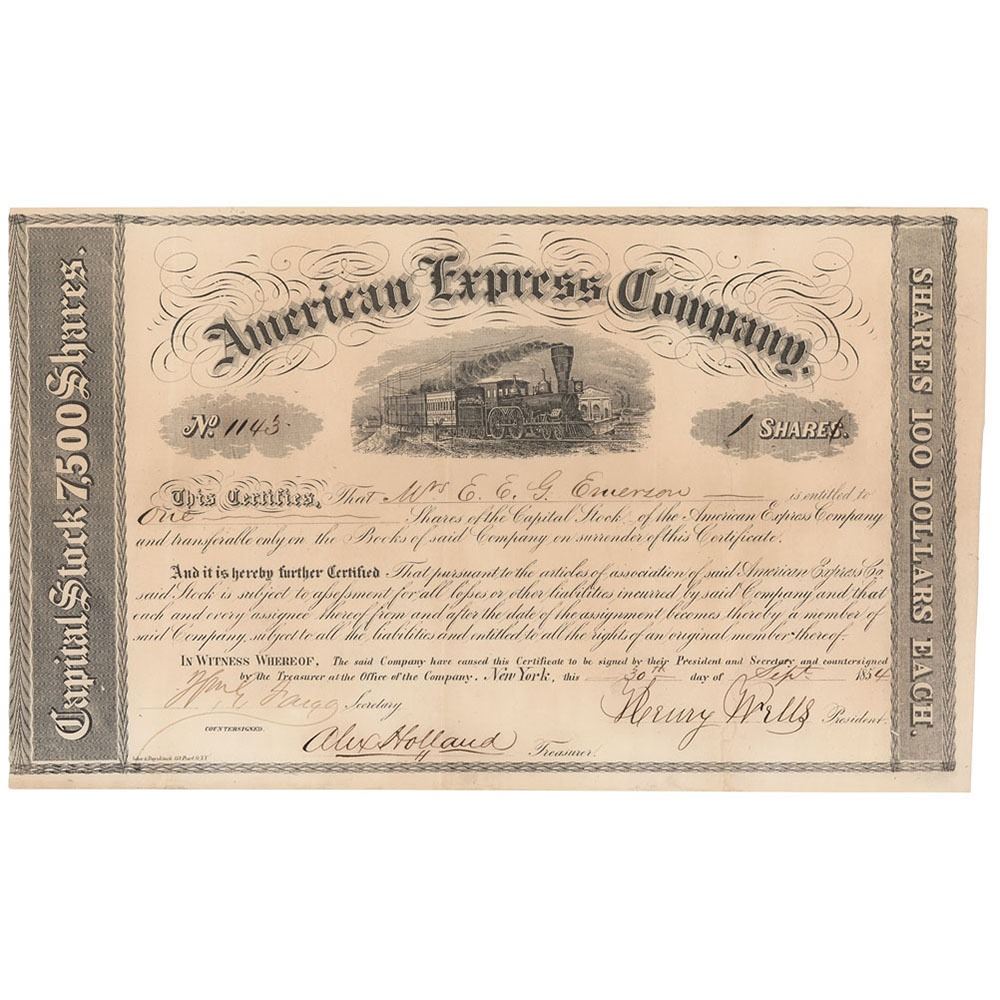 Capital Stock 7,500 Shares.
American Express Company.
No. 1143
1 SHARES.
This Certifies, That Mrs E. E. G. Emerson is entitled to
One Shares of the Capital Stock of the American Express Company
and transferable only on the Books of said Company on surrender of this Certificate.
And it is hereby further Certified That pursuant to the articles of association of said American Express Co
said Stock is subject to assessment for all losses or other liabilities incurred by said Company and that
each and every assignee thereof from and after the date of the assignment becomes thereby a member of
said Company, subject to all the liabilities and entitled to all the rights of an original member thereof.
IN WITNESS WHEREOF, The said Company have caused this Certificate to be signed by their President and Secretary and countersigned
by the Treasurer at the Office of the Company, New York, this 30th day of Sept 1854
Wm G Fargo Secretary
Henry Wells President.
COUNTERSIGNED.
Alex Holland Treasurer.
SHARES 100 DOLLARS EACH.